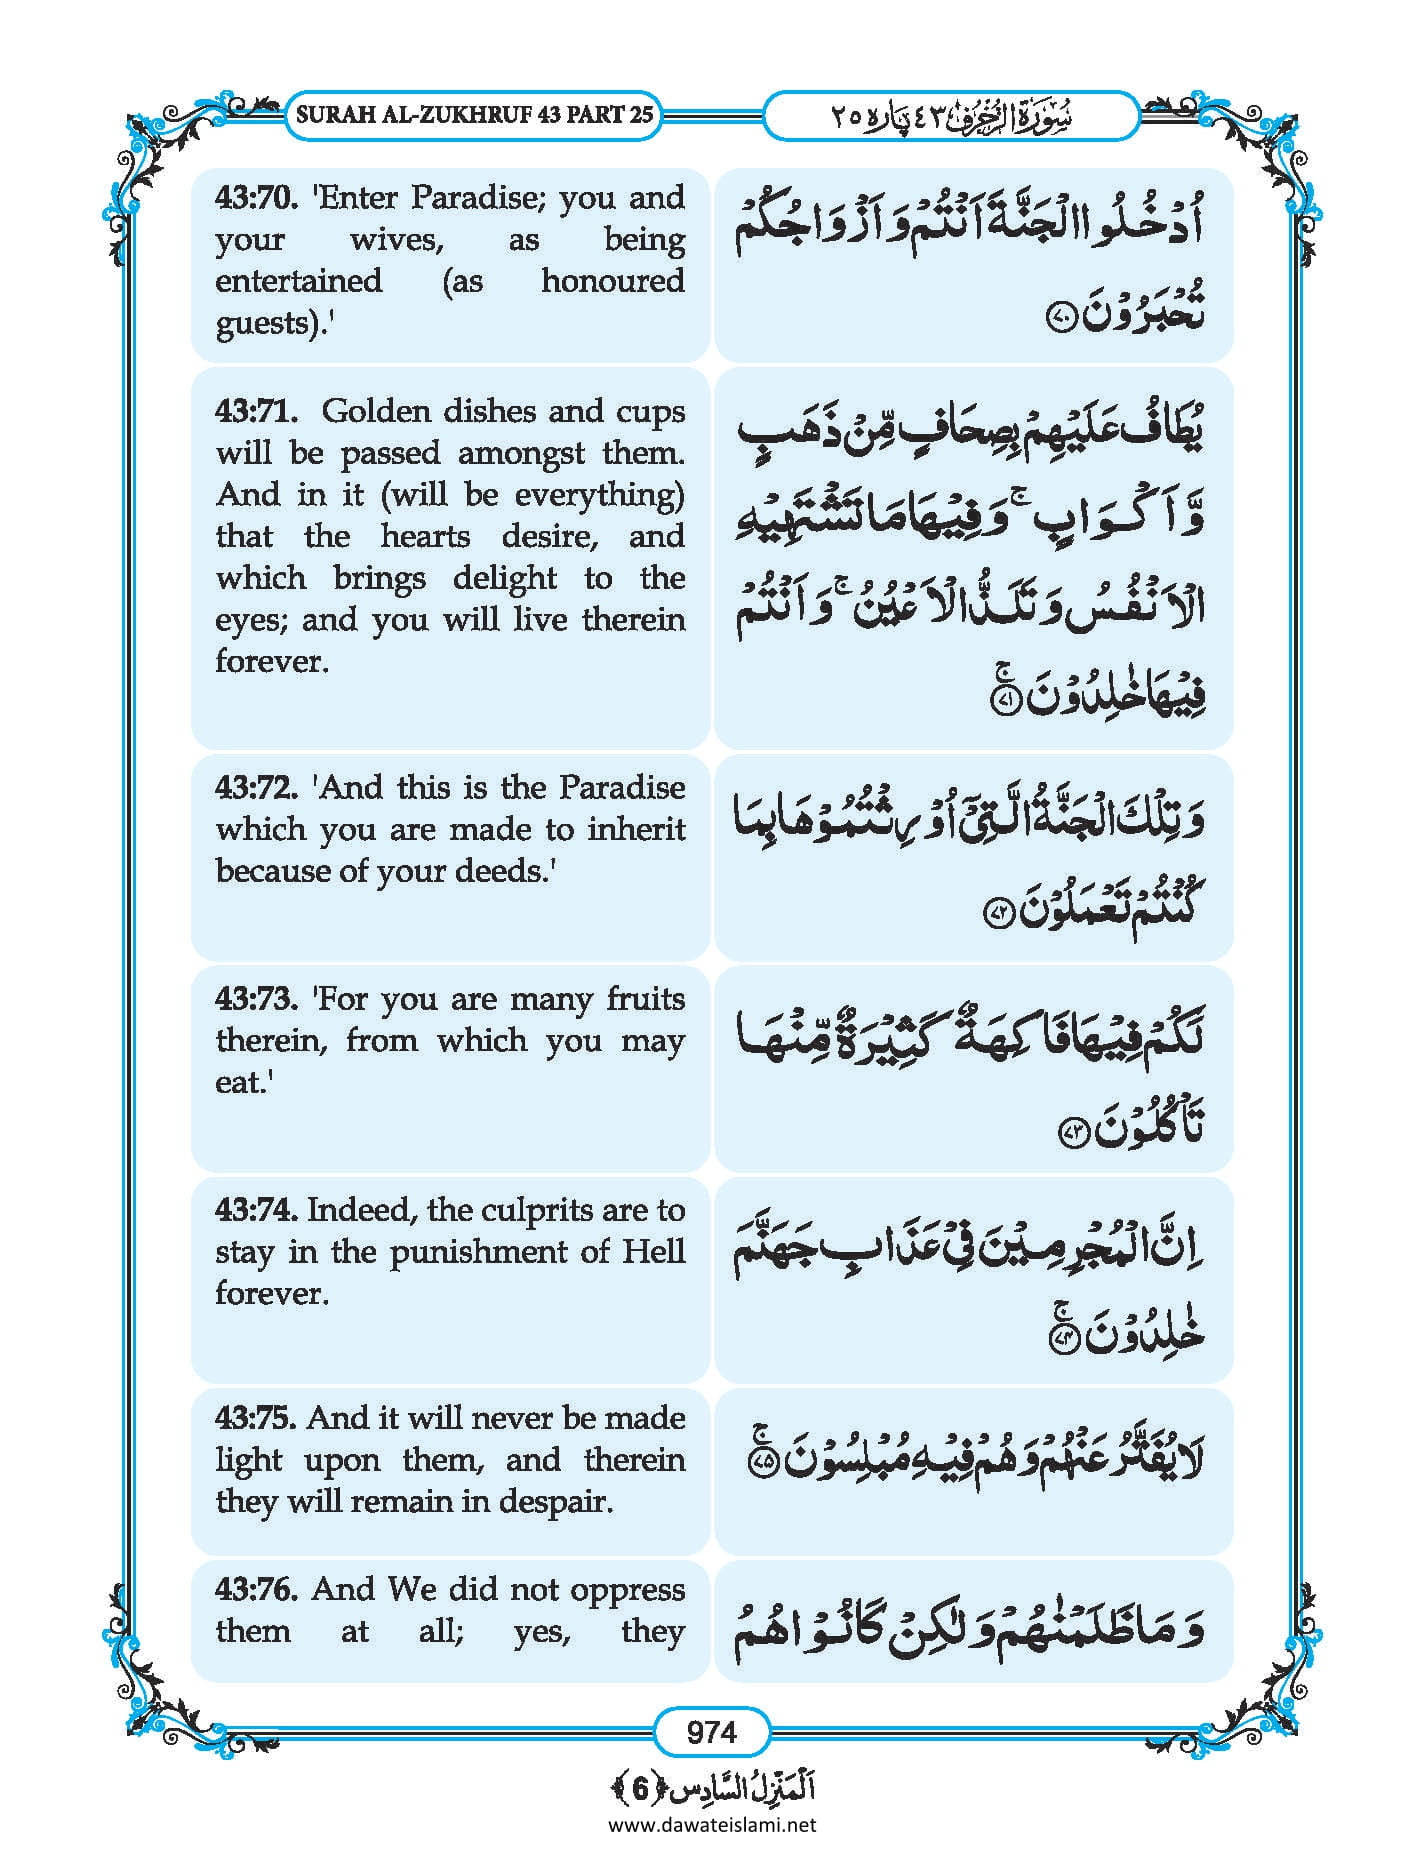 SURAH AL-ZUKHRUF 43 PART 25
سُوۡرَۃُ الزُّخۡرُف ٤٣ پارہ ٢٥
43:70. 'Enter Paradise; you and
your wives, as being
entertained (as honoured
guests).'
اُدۡخُلُوا الۡجَنَّۃَ اَنۡتُمۡ وَ اَزۡوَاجُکُمۡ
تُحۡبَرُوۡنَ ﴿۷۰﴾
43:71. Golden dishes and cups
will be passed amongst them.
And in it (will be everything)
that the hearts desire, and
which brings delight to the
eyes; and you will live therein
forever.
یُطَافُ عَلَیۡہِمۡ بِصِحَافٍ مِّنۡ ذَہَبٍ
وَّ اَکۡوَابٍ ۚ وَ فِیۡہَا مَا تَشۡتَہِیۡہِ
الۡاَنۡفُسُ وَ تَلَذُّ الۡاَعۡیُنُ ۚ وَ اَنۡتُمۡ
فِیۡہَا خٰلِدُوۡنَ ﴿ۚ۷۱﴾
43:72. 'And this is the Paradise
which you are made to inherit
because of your deeds.'
وَ تِلۡکَ الۡجَنَّۃُ الَّتِیۡۤ اُوۡرِثۡتُمُوۡہَا بِمَا
کُنۡتُمۡ تَعۡمَلُوۡنَ ﴿۷۲﴾
43:73. 'For you are many fruits
therein, from which you may
eat.'
لَکُمۡ فِیۡہَا فَاکِہَۃٌ کَثِیۡرَۃٌ مِّنۡہَا
تَاۡکُلُوۡنَ ﴿۷۳﴾
43:74. Indeed, the culprits are to
stay in the punishment of Hell
forever.
اِنَّ الۡمُجۡرِمِیۡنَ فِیۡ عَذَابِ جَہَنَّمَ
خٰلِدُوۡنَ ﴿ۚ۷۴﴾
43:75. And it will never be made
light upon them, and therein
they will remain in despair.
لَا یُفَتَّرُ عَنۡہُمۡ وَ ہُمۡ فِیۡہِ مُبۡلِسُوۡنَ ﴿ۚ۷۵﴾
43:76. And We did not oppress
them at all; yes, they
وَ مَا ظَلَمۡنٰہُمۡ وَ لٰکِنۡ کَانُوۡا ہُمُ
974
اَلۡمَنۡزِلُ السَّادِس ﴿6﴾
www.dawateislami.net